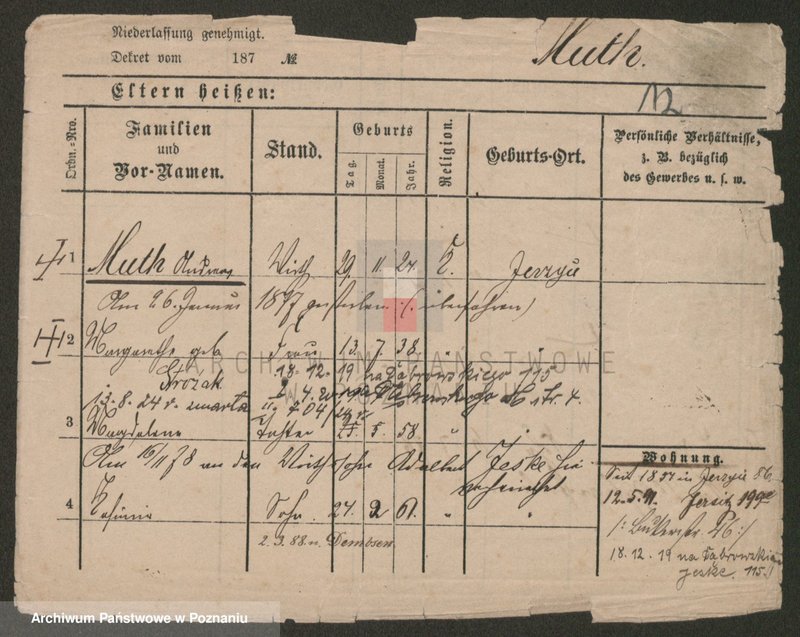 Niederlassung genehmigt.
Dekret vom 187 №
Muth.
12
Eltern heißen:
Ordn.=Nro.
Familien und Vor-Namen.
Stand.
Geburts
Tag.
Monat.
Jahr.
Religion.
Geburts-Ort.
Persönliche Verhältnisse, z. B. bezüglich des Gewerbes u. s. w.
1 Muth Andreas Wirth 29 11 24 K. Jerzyce
Am 26. Januar 1877 gestorben (überfahren)
2 Margarethe geb. Frau 13. 7. 38. " "
Strozak 18-12-19 na Dąbrowskiego 115
13-8-24 r. umarła
3 Magdalena Tochter 5. 58. " "
Am 16/11 78 an den Wirthssohn Adalbert Jeske hier verheirathet
4 Sohn. 24. 2 61. " "
2.3.88. n. Dembsen
Wohnung.
Seit in Jerzyce 86.
12.5.91. Jersitz
18.12.19 na Dąbrowskiego
Jeske. 115.
ARCHIWUM PAŃSTWOWE
W POZNANIU
Archiwum Państwowe w Poznaniu